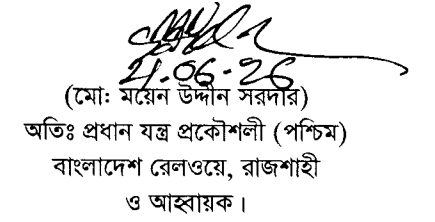 21.06.26
(মো: ময়েন উদ্দীন সরদার)
অতিঃ প্রধান যন্ত্র প্রকৌশলী (পশ্চিম)
বাংলাদেশ রেলওয়ে, রাজশাহী
ও আহ্বায়ক।